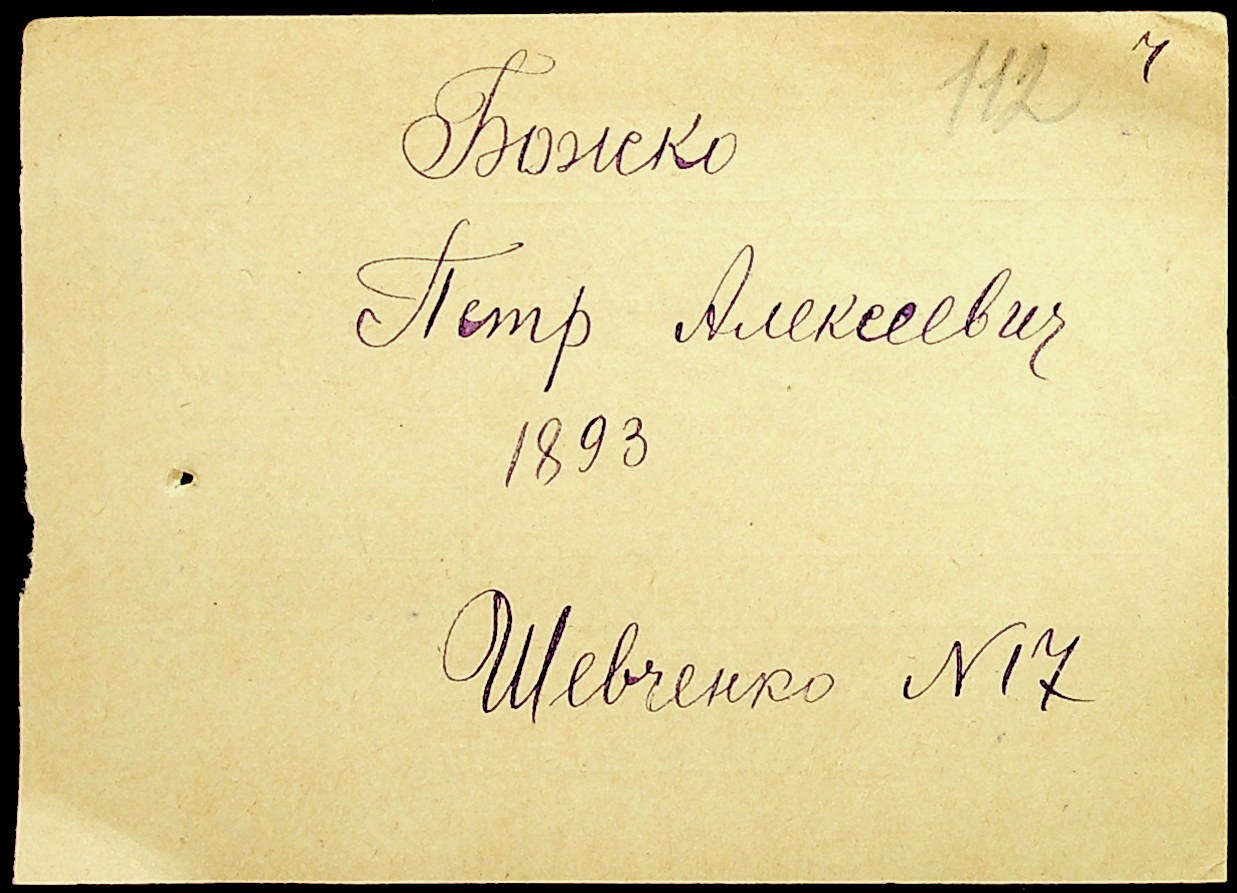 112 ч
Божско
Петр Алексеевич
1893
Шевченко N 17